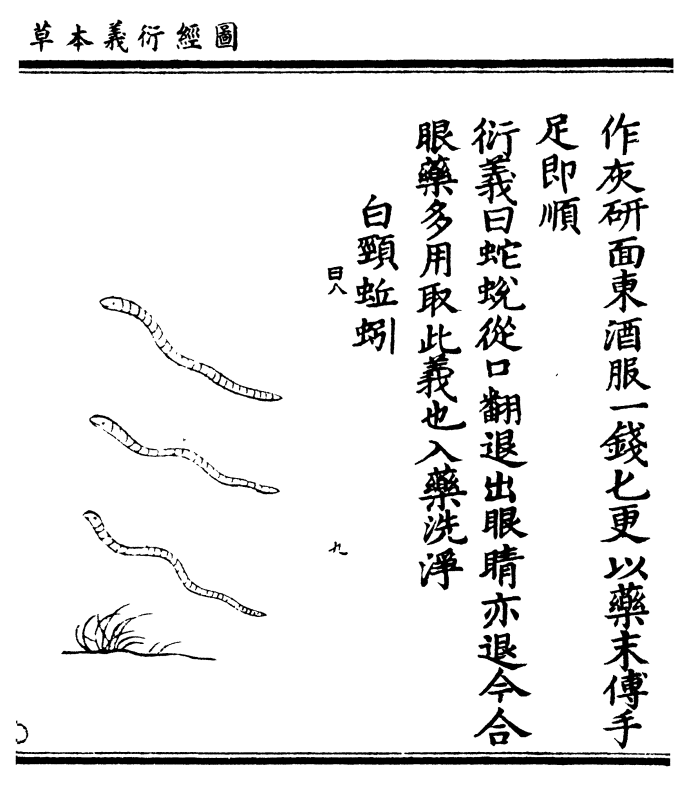 圖經衍義本草
作灰研面東酒服一錢匕更以藥末傅手
足即順
衍義曰蛇蛻從口翻退出眼睛亦退今合
眼藥多用取此義也入藥洗淨
白頸蚯蚓
曰八
九